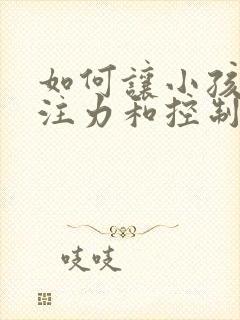 如何讓小孩
注力和控制
吱吱